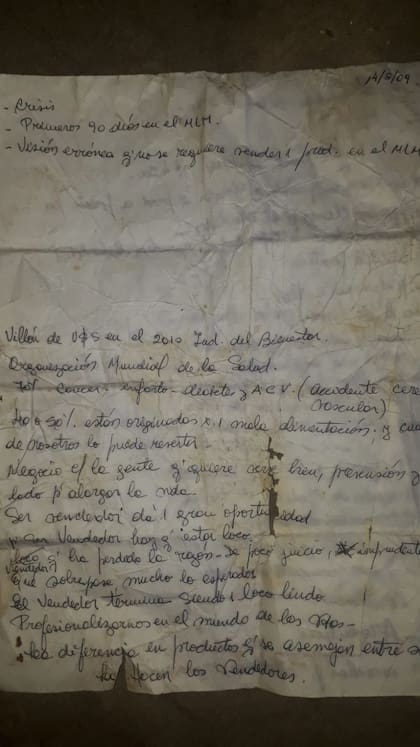 14/8/09
- Crisis
- Primeros 90 días en el MLM.
- Visión errónea q' no se requiere vender 1 prod. en el MLM
Villón de U$S en el 2010 Ind. del Bienestar.
Organización Mundial de la Salud.
70% Cancer - infarto - diabetes y ACV. (accidente cere
vascular)
40 a 50% están originados x 1 mala alimentación. y
de nosotros lo puede
Negocio c/ la gente q' quiere verse bien,
p' alargar la vida.
Ser vendedor dá 1 gran oportunidad
P' Ser Vendedor hay q' estar loco
loco q' ha perdido la razón - de poco juicio, imprudente
vendedor
Que sobrepase mucho lo esperado
El Vendedor termina siendo 1 loco lindo
Profesionalizarnos en el mundo de las Vtas -
La diferencia en productos q' se asemejan entre s
la hacen los Vendedores.